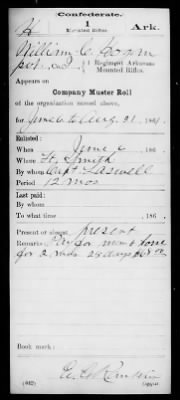 Confederate.
H 1 Ark.
Mounted Rifles.
William C.
1 Regiment Arkansas
Mounted Rifles.
Appears on
Company Muster Roll
of the organization named above,
for June 6 to Aug. 31, 1861.
Enlisted:
When June 6, 186
Where Ft. Smith
By whom Capt.
Period 12 mos
Last paid:
By whom
To what time , 186 .
Present or absent Present
Remarks: Pay for
for 2 mos 25 days
Book mark:
(642) Copyist.